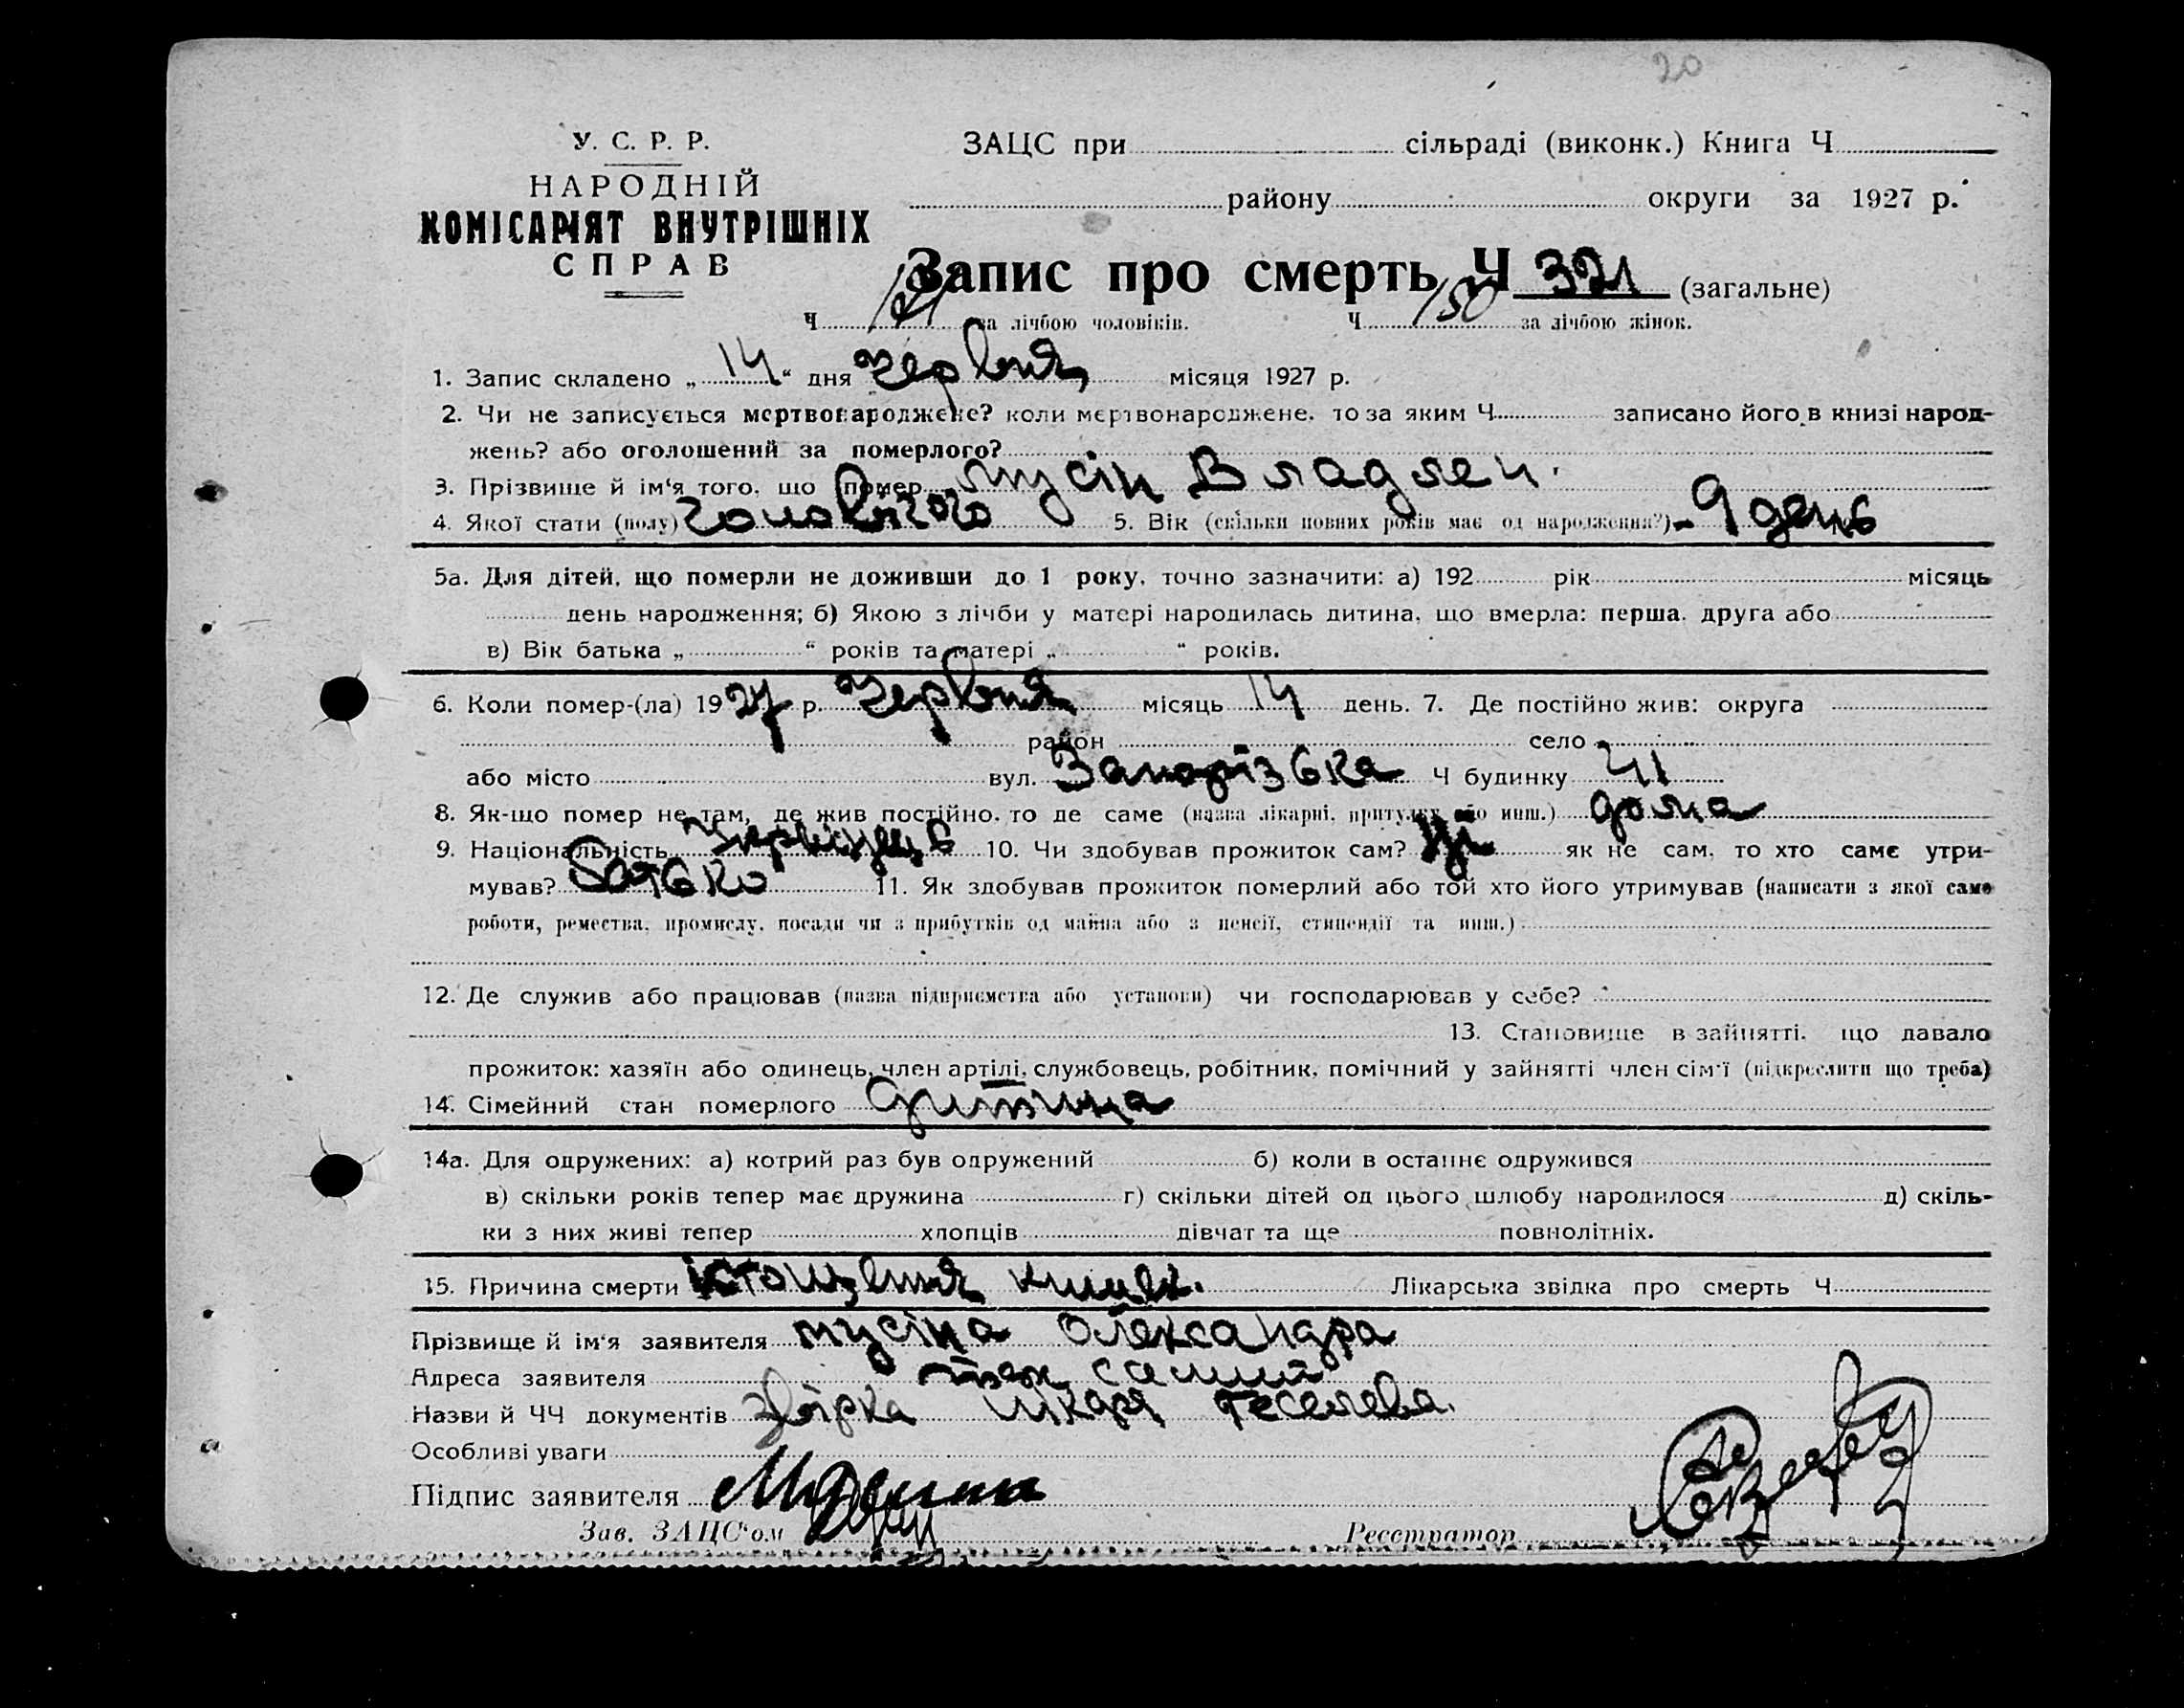 20
У. С. Р. Р.
НАРОДНІЙ
КОМІСАРІЯТ ВНУТРІШНІХ
СПРАВ
ЗАЦС при сільраді (виконк.) Книга Ч
району округи за 1927 р.
Запис про смерть Ч 321 (загальне)
Ч 171 за лічбою чоловіків. Ч 150 за лічбою жінок.
1. Запис складено „ 14 “ дня червня місяця 1927 р.
2. Чи не записується мертвонароджене? коли мертвонароджене, то за яким Ч. записано його в книзі народ-
жень? або оголошений за померлого?
3. Прізвище й ім‘я того, що помер Мусін Владлен.
4. Якої стати (полу) чоловічого 5. Вік (скільки повних років має од народження?) - 9 день
5а. Для дітей, що померли не доживши до 1 року, точно зазначити: а) 192 рік місяць
день народження; б) Якою з лічби у матері народилась дитина, що вмерла: перша, друга або
в) Вік батька „ “ років та матері „ “ років.
6. Коли помер-(ла) 1927 р. червня місяць 14 день. 7. Де постійно жив: округа
район село
або місто вул. Запорізька Ч будинку 41
8. Як-що помер не там, де жив постійно, то де саме (назва лікарні, притулку або инш.) дома
9. Національність українець 10. Чи здобував прожиток сам? ні як не сам, то хто саме утри-
мував? батько 11. Як здобував прожиток померлий або той хто його утримував (написати з якої саме
роботи, ремества, промислу, посади чи з прибутків од майна або з пенсії, стипендії та инш.)
12. Де служив або працював (назва підприємства або установи) чи господарював у себе?
13. Становище в зайнятті, що давало
прожиток: хазяїн або одинець, член артілі, службовець, робітник, помічний у зайнятті член сім‘ї (підкреслити що треба)
14. Сімейний стан померлого дитина
14а. Для одружених: а) котрий раз був одружений б) коли в останнє одружився
в) скільки років тепер має дружина г) скільки дітей од цього шлюбу народилося д) скіль-
ки з них живі тепер хлопців дівчат та ще повнолітніх.
15. Причина смерти істощення кишек. Лікарська звідка про смерть Ч
Прізвище й ім‘я заявителя Мусіна Олександра
Адреса заявителя
Назви й ЧЧ документів лікаря Геселева.
Особливі уваги
Підпис заявителя
Зав. ЗАЦС‘ом Реєстратор